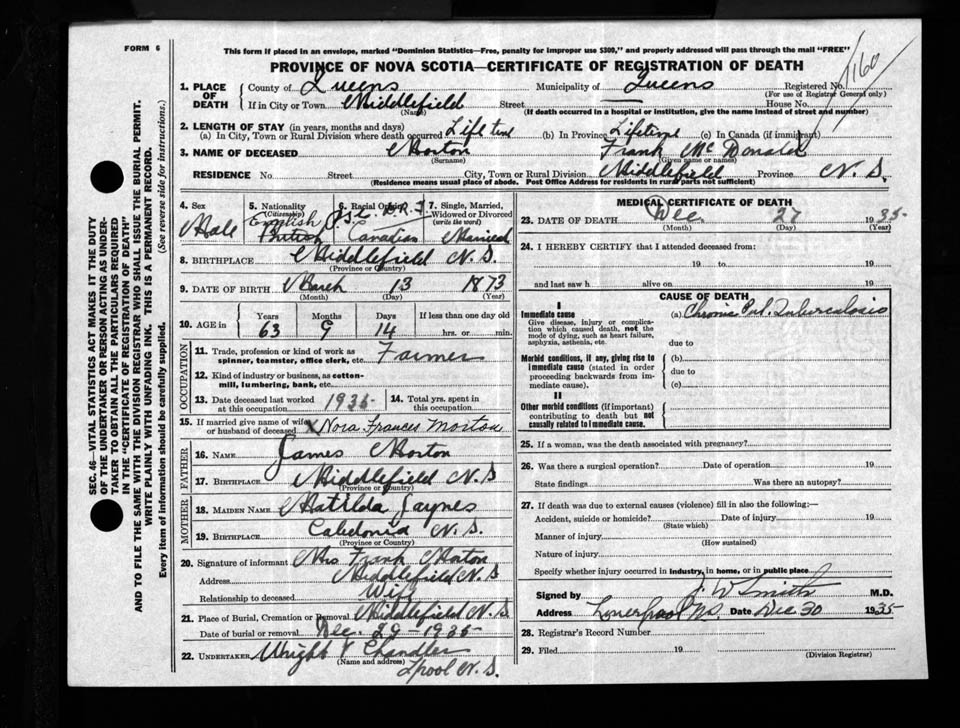 FORM 6
This form if placed in an envelope, marked "Dominion Statistics—Free, penalty for improper use $300," and properly addressed will pass through the mail "FREE"
PROVINCE OF NOVA SCOTIA—CERTIFICATE OF REGISTRATION OF DEATH
1160
1. PLACE OF DEATH County of Queens Municipality of Queens Registered No.
(For use of Registrar General only)
If in City or Town Middlefield Street — House No.
(Name) (If death occurred in a hospital or institution, give the name instead of street and number)
2. LENGTH OF STAY (in years, months and days)
(a) In City, Town or Rural Division where death occurred Life time (b) In Province Lifetime (c) In Canada (if immigrant)
3. NAME OF DECEASED Morton Frank McDonald
(Surname) (Given name or names)
RESIDENCE No. Street City, Town or Rural Division Middlefield Province N.S.
(Residence means usual place of abode. Post Office Address for residents in rural parts not sufficient)
4. Sex Male
5. Nationality (Citizenship) English British
6. Racial Origin Canadian
7. Single, Married, Widowed or Divorced (write the word) Married
8. BIRTHPLACE Middlefield N.S.
(Province or Country)
9. DATE OF BIRTH March 13 1873
(Month) (Day) (Year)
10. AGE in Years Months Days If less than one day old
63 9 14 hrs. or min.
OCCUPATION
11. Trade, profession or kind of work as spinner, teamster, office clerk, etc. Farmer
12. Kind of industry or business, as cotton-mill, lumbering, bank, etc.
13. Date deceased last worked at this occupation 1935
14. Total yrs. spent in this occupation
15. If married give name of wife or husband of deceased X Nora Frances Morton
FATHER
16. NAME James Morton
17. BIRTHPLACE Middlefield N.S
(Province or Country)
MOTHER
18. MAIDEN NAME Matilda Jaynes
19. BIRTHPLACE Caledonia N.S.
(Province or Country)
20. Signature of informant Mrs Frank Morton
Address Middlefield N.S
Relationship to deceased Wife
21. Place of Burial, Cremation or Removal Middlefield N.S
Date of burial or removal Dec. 29-1935
22. UNDERTAKER Wright V Chandler
(Name and address) Lpool N.S.
MEDICAL CERTIFICATE OF DEATH
23. DATE OF DEATH Dec. 27 1935
(Month) (Day) (Year)
24. I HEREBY CERTIFY that I attended deceased from:
19 to 19
and last saw h alive on 19
CAUSE OF DEATH
I
Immediate cause
Give disease, injury or complication which caused death, not the mode of dying, such as heart failure, asphyxia, asthenia, etc.
(a) Chronic Pul. Tuberculosis
due to
Morbid conditions, if any, giving rise to immediate cause (stated in order proceeding backwards from immediate cause).
(b)
due to
(c)
II
Other morbid conditions (if important) contributing to death but not causally related to immediate cause.
25. If a woman, was the death associated with pregnancy?
26. Was there a surgical operation? Date of operation 19
State findings Was there an autopsy?
27. If death was due to external causes (violence) fill in also the following:—
Accident, suicide or homicide? Date of injury 19
(State which)
Manner of injury
(How sustained)
Nature of injury
Specify whether injury occurred in industry, in home, or in public place
Signed by J. W Smith M.D.
Address Liverpool NS. Date Dec 30 1935
28. Registrar's Record Number
29. Filed 19
(Division Registrar)
SEC. 46—VITAL STATISTICS ACT MAKES IT THE DUTY
OF THE UNDERTAKER OR PERSON ACTING AS UNDER-
TAKER TO OBTAIN ALL THE PARTICULARS REQUIRED
IN THE "CERTIFICATE OF REGISTRATION OF DEATH"
AND TO FILE THE SAME WITH THE DIVISION REGISTRAR WHO SHALL ISSUE THE BURIAL PERMIT.
WRITE PLAINLY WITH UNFADING INK. THIS IS A PERMANENT RECORD.
Every item of information should be carefully supplied. (See reverse side for instructions.)